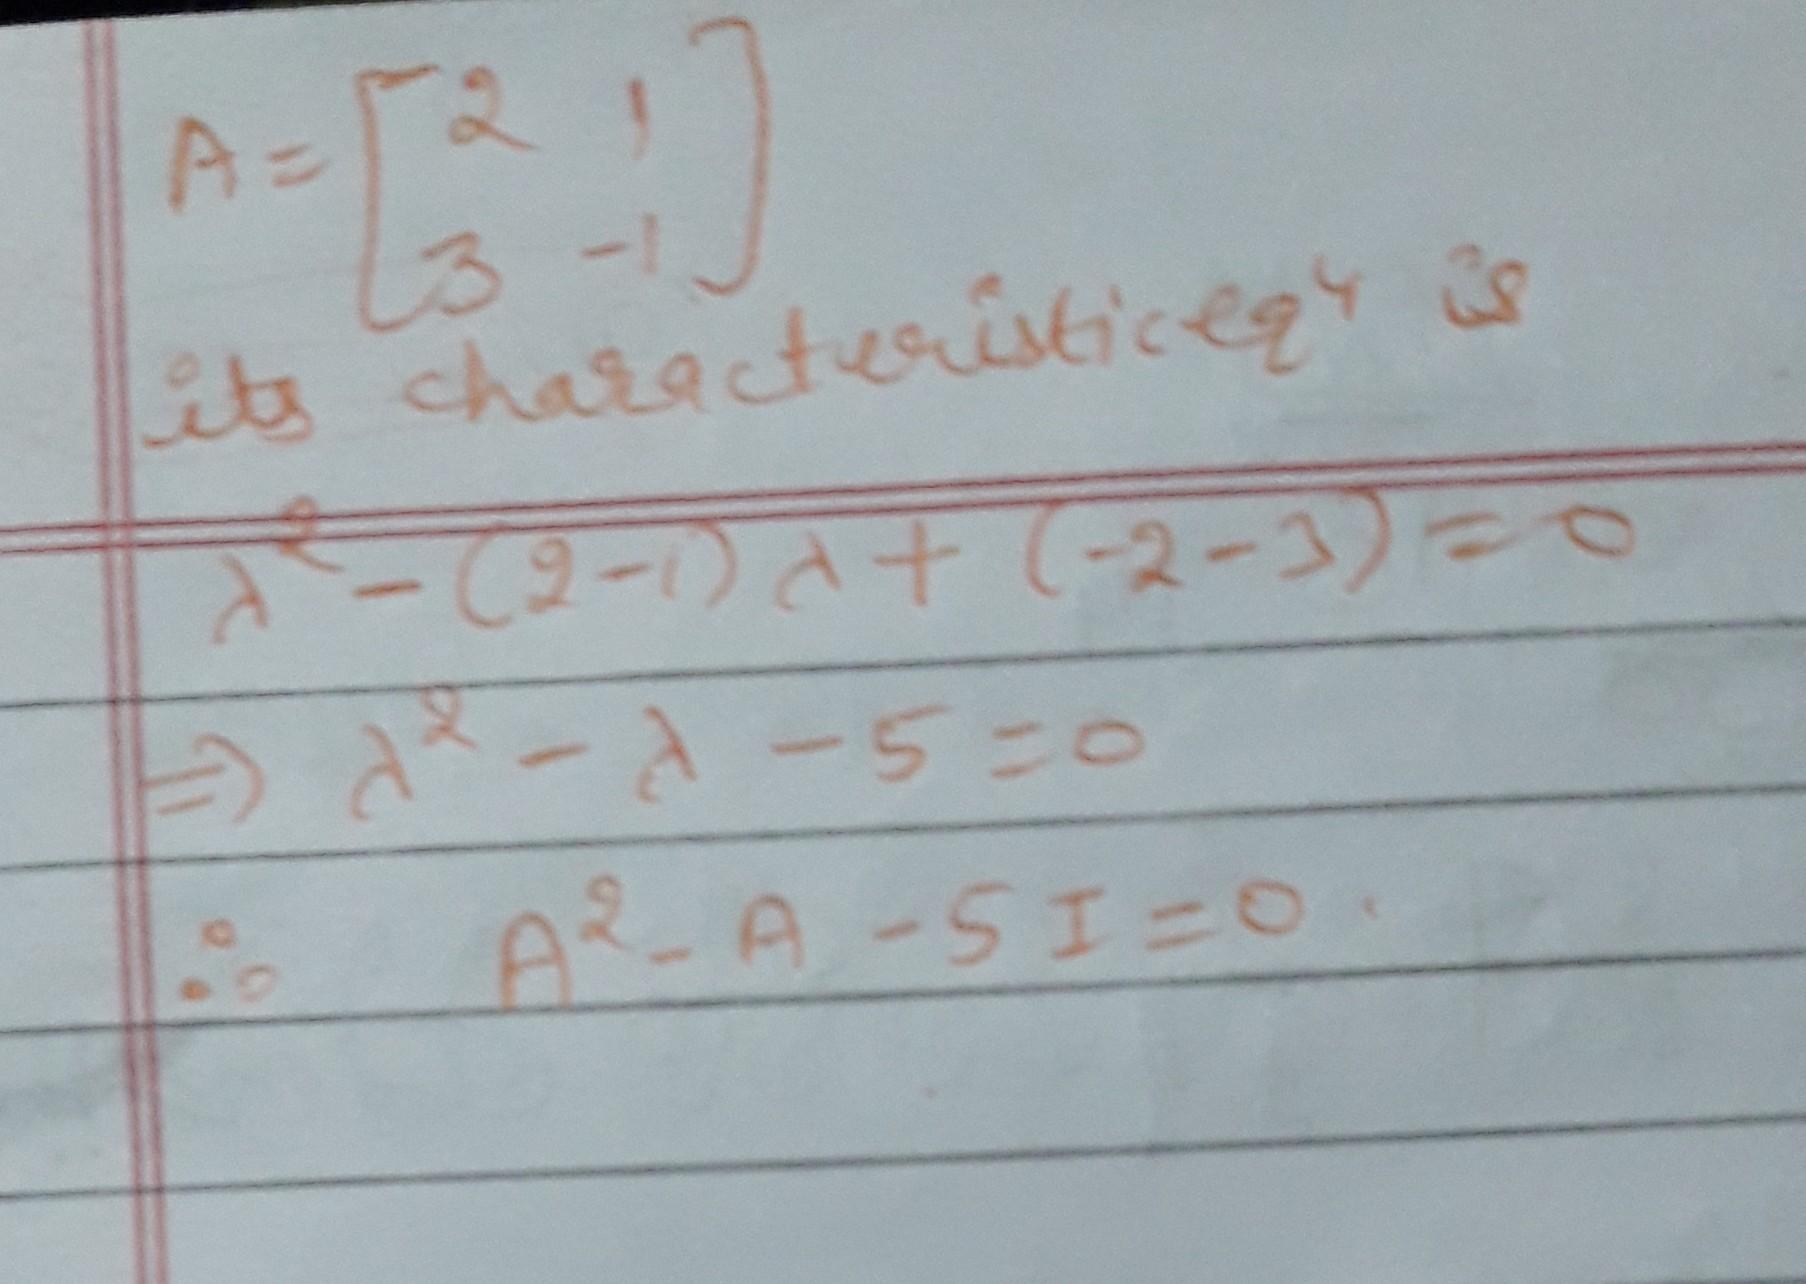 A = [2 1
3 -1]
its characteristic eqⁿ is
λ² - (2-1) λ + (-2-3) = 0
⇒ λ² - λ - 5 = 0
∴ A² - A - 5 I = 0.